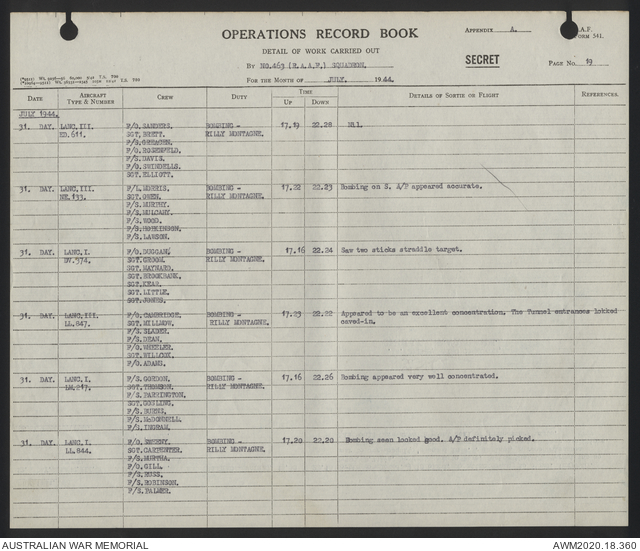 OPERATIONS RECORD BOOK
APPENDIX A.
R.A.F. FORM 541.
DETAIL OF WORK CARRIED OUT
SECRET
BY NO.463 (R.A.A.F.) SQUADRON.
PAGE NO. 19
FOR THE MONTH OF JULY, 1944.
DATE AIRCRAFT TYPE & NUMBER CREW DUTY TIME UP DOWN DETAILS OF SORTIE OR FLIGHT REFERENCES.
JULY 1944.
31. DAY. LANC.III. F/O. SANDERS. BOMBING - 17.19 22.28 Nil.
ED.611. SGT. BRETT. RILLY MONTAGNE.
F/S. GREAGEN.
F/O. ROSENFELD.
F/S. DAVIS.
F/O. SWINDELLS.
SGT. ELLIOTT.
31. DAY. LANC.III. F/L. MORRIS. BOMBING - 17.22 22.23 Bombing on S. A/P appeared accurate.
NE.133. SGT. OWEN. RILLY MONTAGNE.
F/S. MURPHY.
F/S. MULCAHY.
F/S. WOOD.
F/S. HOPKINSON.
F/S. LAWSON.
31. DAY. LANC.I. F/O. DUGGAN. BOMBING - 17.16 22.24 Saw two sticks straddle target.
DV.374. SGT. GROOM. RILLY MONTAGNE.
SGT. MAYNARD.
SGT. BROOKBANK.
SGT. KEAR.
SGT. LITTLE.
SGT. JONES.
31. DAY. LANC.III. F/O. CAMBRIDGE. BOMBING - 17.23 22.22 Appeared to be an excellent concentration. The Tunnel entrances lokked
LL.847. SGT. MILLNOW. RILLY MONTAGNE. caved-in.
F/S. SLADER.
F/S. DEAN.
F/O. WHEELER.
SGT. WILLCOX.
F/O. ADAMS.
31. DAY. LANC.I. F/S. GORDON. BOMBING - 17.16 22.26 Bombing appeared very well concentrated.
LM.247. SGT. THOMSON. RILLY MONTAGNE.
F/S. FARRINGTON.
SGT. GOSLING.
F/S. BURNS.
F/S. McDONNELL.
F/S. INGRAM.
31. DAY. LANC.I. F/O. EMBERY. BOMBING - 17.20 22.20 Bombing seen looked good. A/P definitely picked.
LL.844. SGT. CARPENTER. RILLY MONTAGNE.
F/S. MURTHA.
F/O. GILL.
F/S. ROSS.
F/S. ROBINSON.
F/S. PALMER.
AUSTRALIAN WAR MEMORIAL
AWM2020.18.360